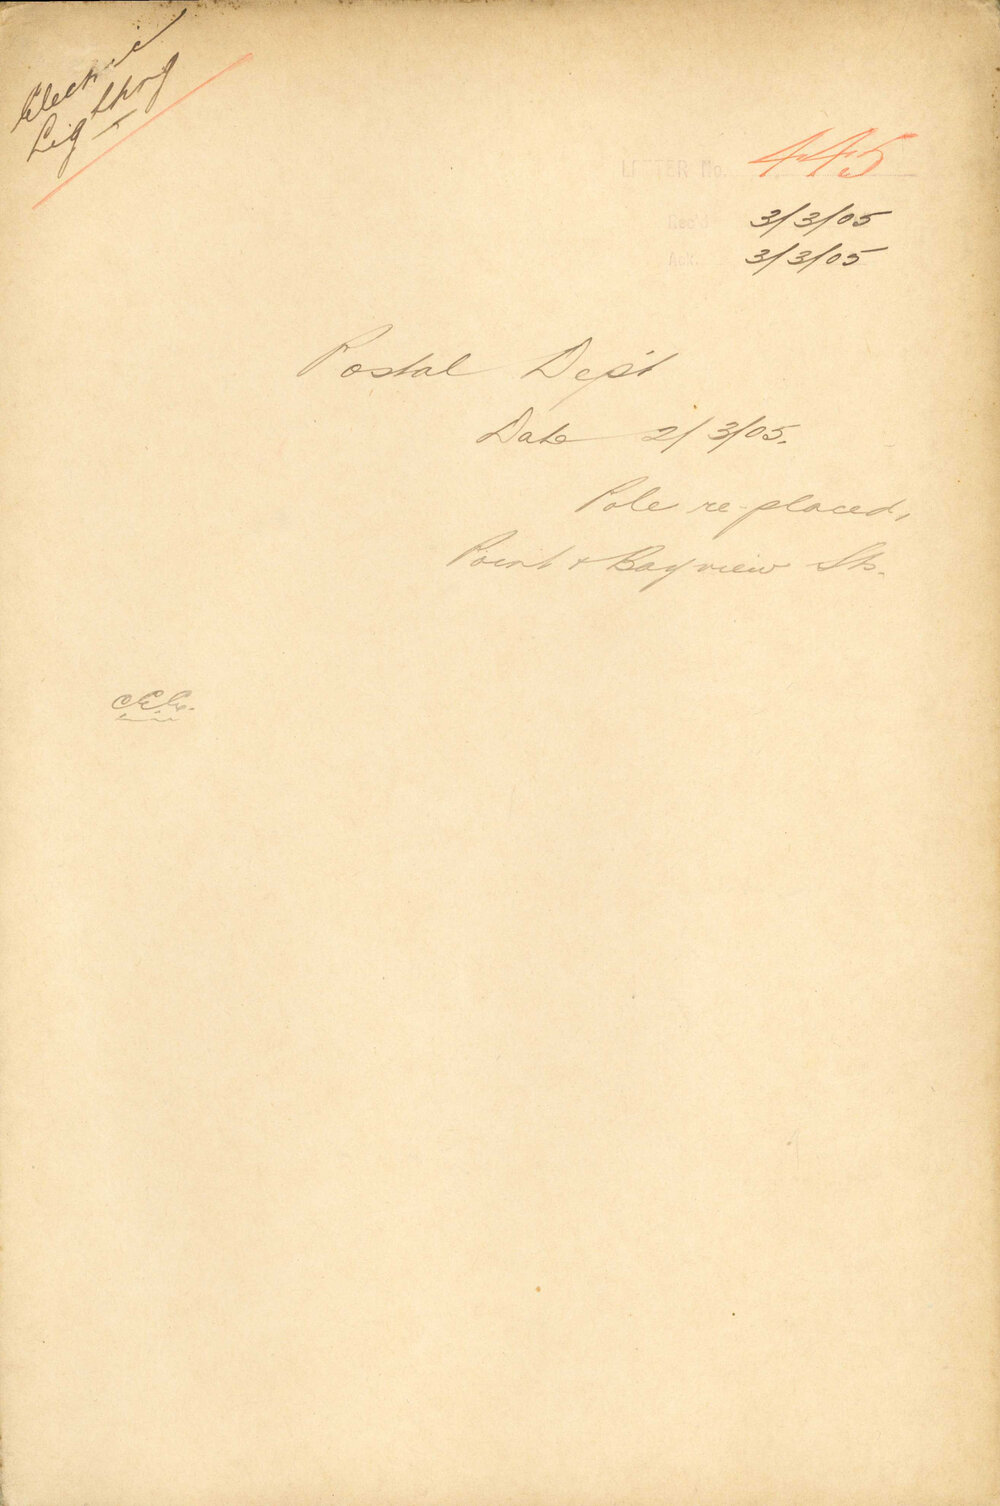 Electric
Lighting
LETTER No. 445
Rec'd 3/3/05
Ack. 3/3/05
Postal Dep't
Date 2/3/05.
Pole re-placed,
Point & Bayview Sts.